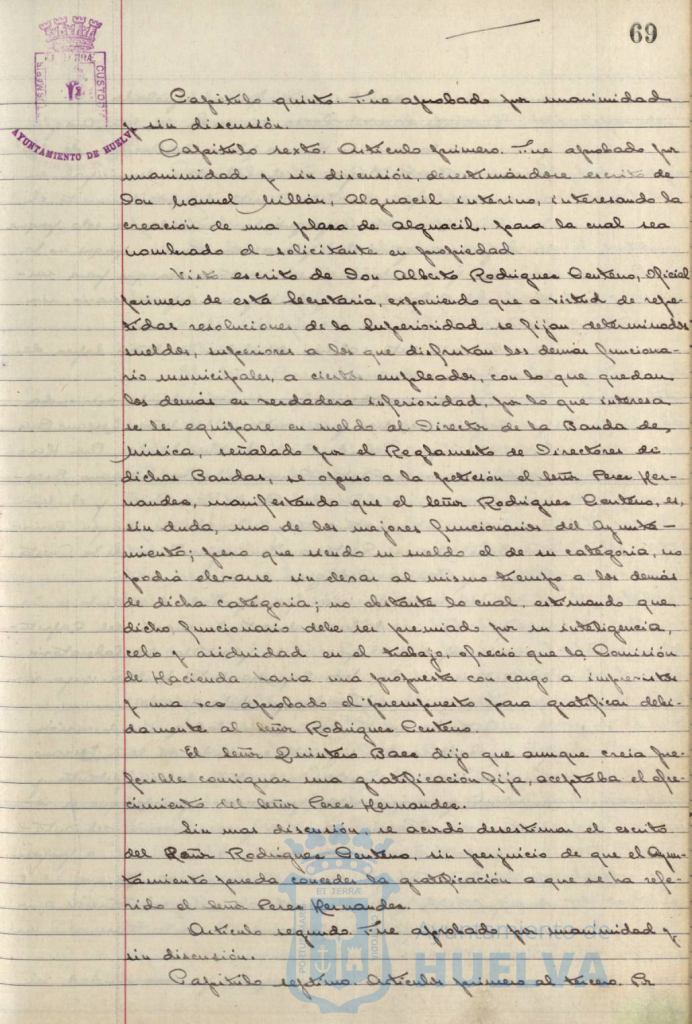 69
PORTUS MARIS ET TERRÆ CUSTODIA
AYUNTAMIENTO DE HUELVA
Capitulo quinto. Fue aprobado por unanimidad
y sin discusión.
Capitulo sexto. Articulo primero. Fue aprobado por
unanimidad y sin discusión, desestimándose escrito de
Don Manuel Millán, Alguacil interino, interesando la
creación de una plaza de Alguacil, para la cual sea
nombrado el solicitante en propiedad
Visto escrito de Don Alberto Rodriguez Centeno, Oficial
primero de esta Secretaria, exponiendo que a virtud de repe-
tidas resoluciones de la Superioridad se fijan determinados
sueldos, superiores a los que disfrutan los demás funciona-
rio municipales, a ciertos empleados, con lo que quedan
los demás en verdadera inferioridad, por lo que interesa
se le equipare en sueldo al Director de la Banda de
Música, señalado por el Reglamento de Directores de
dichas Bandas, se opuso a la petición el Señor Perez Her-
nandez, manifestando que el Señor Rodriguez Centeno, es,
sin duda, uno de los mejores funcionarios del Ayunta-
miento; pero que siendo su sueldo el de su categoria, no
podrá elevarse sin elevar al mismo tiempo a los demás
de dicha categoria; no obstante lo cual, estimando que
dicho funcionario debe ser premiado por su inteligencia,
celo y asiduidad en el trabajo, ofreció que la Comisión
de Hacienda haria una propuesta con cargo a imprevistos
y una vez aprobado el presupuesto para gratificar debi-
damente al Señor Rodriguez Centeno.
El Señor Quintero Baez dijo que aunque creia pre-
ferible consignar una gratificación fija, aceptaba el ofre-
cimiento del Señor Perez Hernandez.
Sin mas discusión, se acordó desestimar el escrito
del Señor Rodriguez Centeno, sin perjuicio de que el Ayun-
tamiento pueda conceder la gratificación a que se ha refe-
rido el Señor Perez Hernandez.
Articulo segundo. Fue aprobado por unanimidad y
sin discusión.
Capitulo septimo. Articulos primero al tercero. Fue
Ayuntamiento de
HUELVA